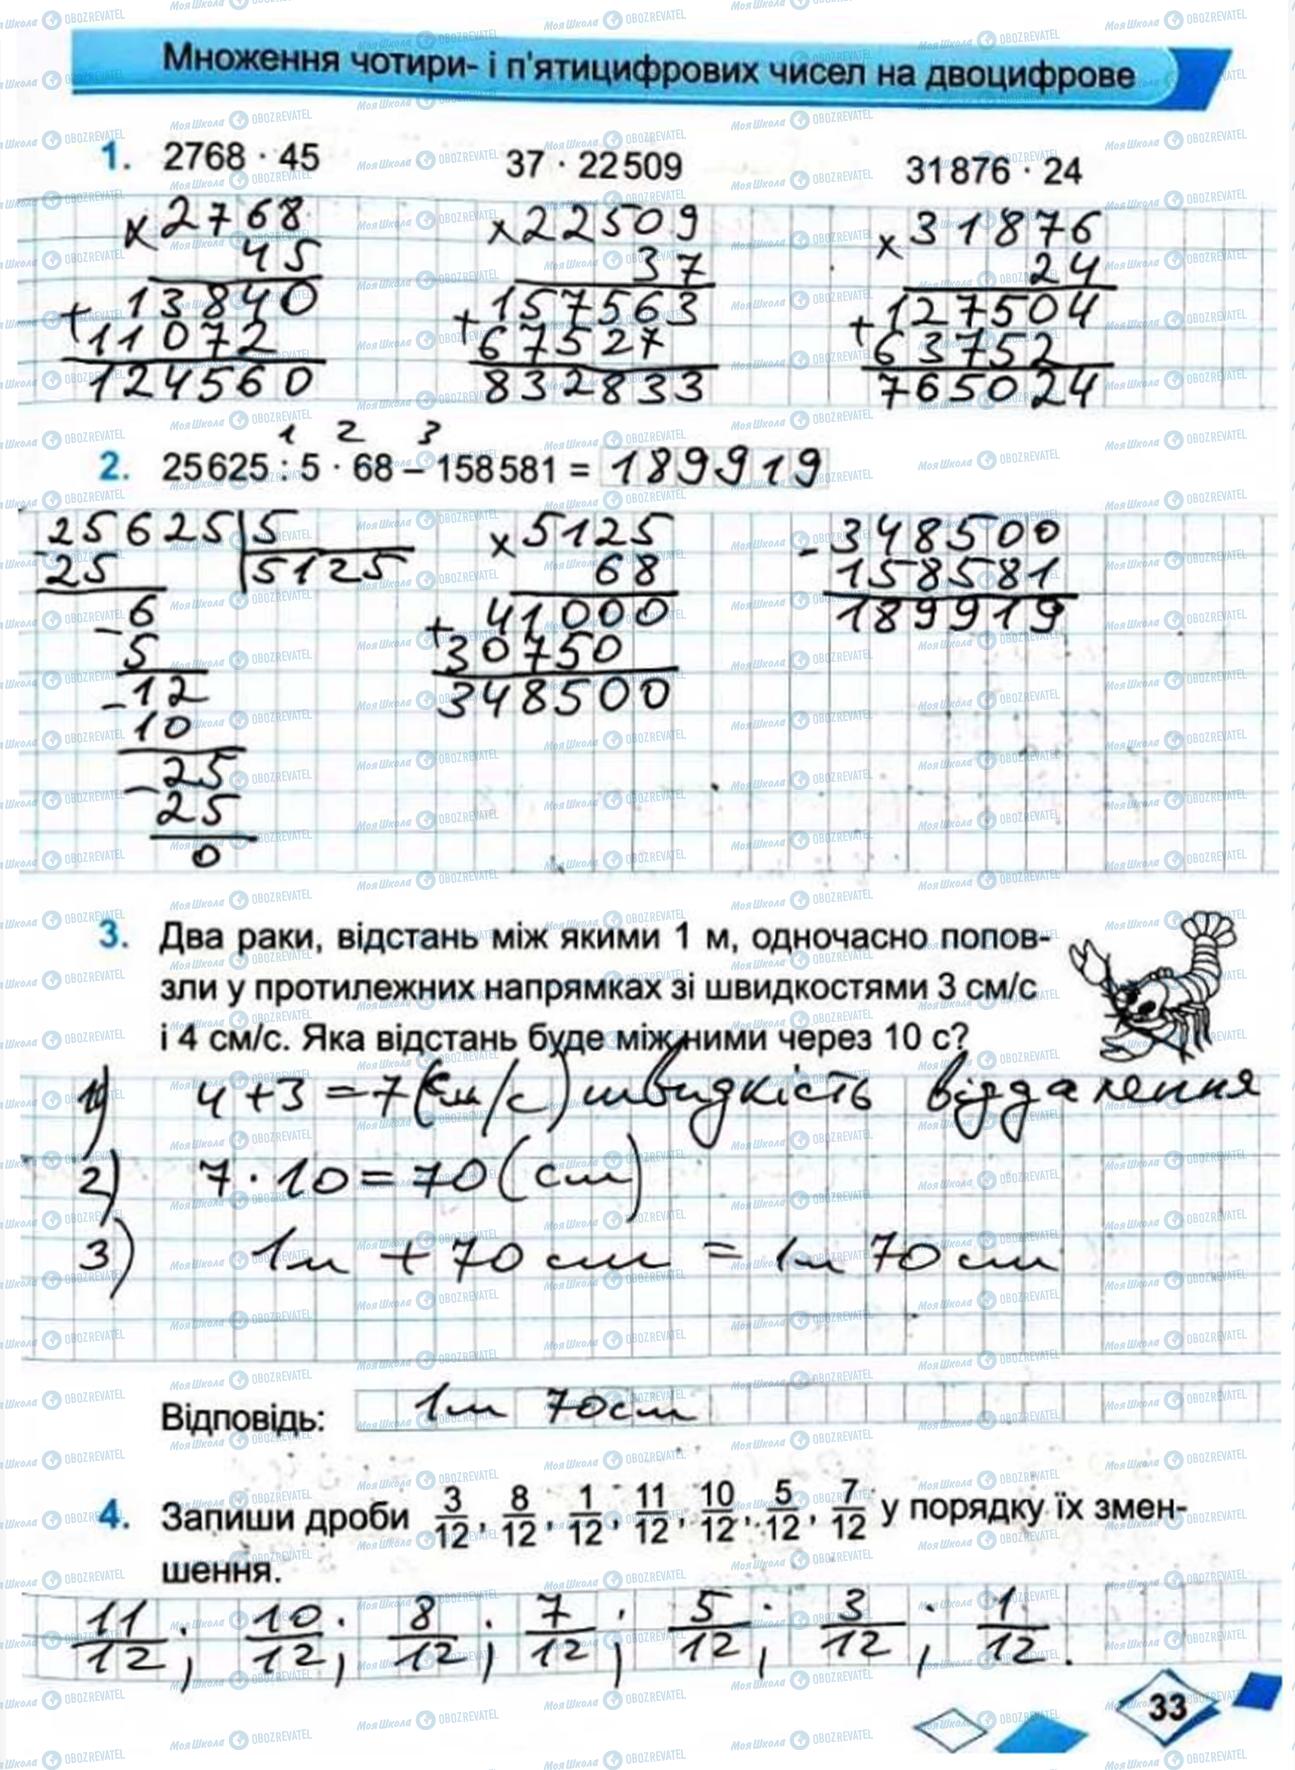 Множення чотири- і п'ятицифрових чисел на двоцифрове
1. 2768 · 45 37 · 22 509 31 876 · 24
× 2768 × 22509 × 31876
45 37 24
+ 13840 + 157563 + 127504
11072 67527 63752
124560 832833 765024
1 2 3
2. 25 625 : 5 · 68 – 158 581 = 189919
- 25625 | 5 × 5125 - 348500
25 | 5125 68 158581
- 6 + 41000 189919
5 30750
- 12 348500
10
- 25
25
0
3. Два раки, відстань між якими 1 м, одночасно попов-
зли у протилежних напрямках зі швидкостями 3 см/с
і 4 см/с. Яка відстань буде між ними через 10 с?
1) 4 + 3 = 7 (см/с) швидкість віддалення
2) 7 · 10 = 70 (см)
3) 1м + 70 см = 1м 70 см
Відповідь: 1м 70см
4. Запиши дроби 3/12, 8/12, 1/12, 11/12, 10/12, 5/12, 7/12 у порядку їх змен-
шення.
11/12; 10/12; 8/12; 7/12; 5/12; 3/12; 1/12.
33
МояШкола OBOZREVATEL